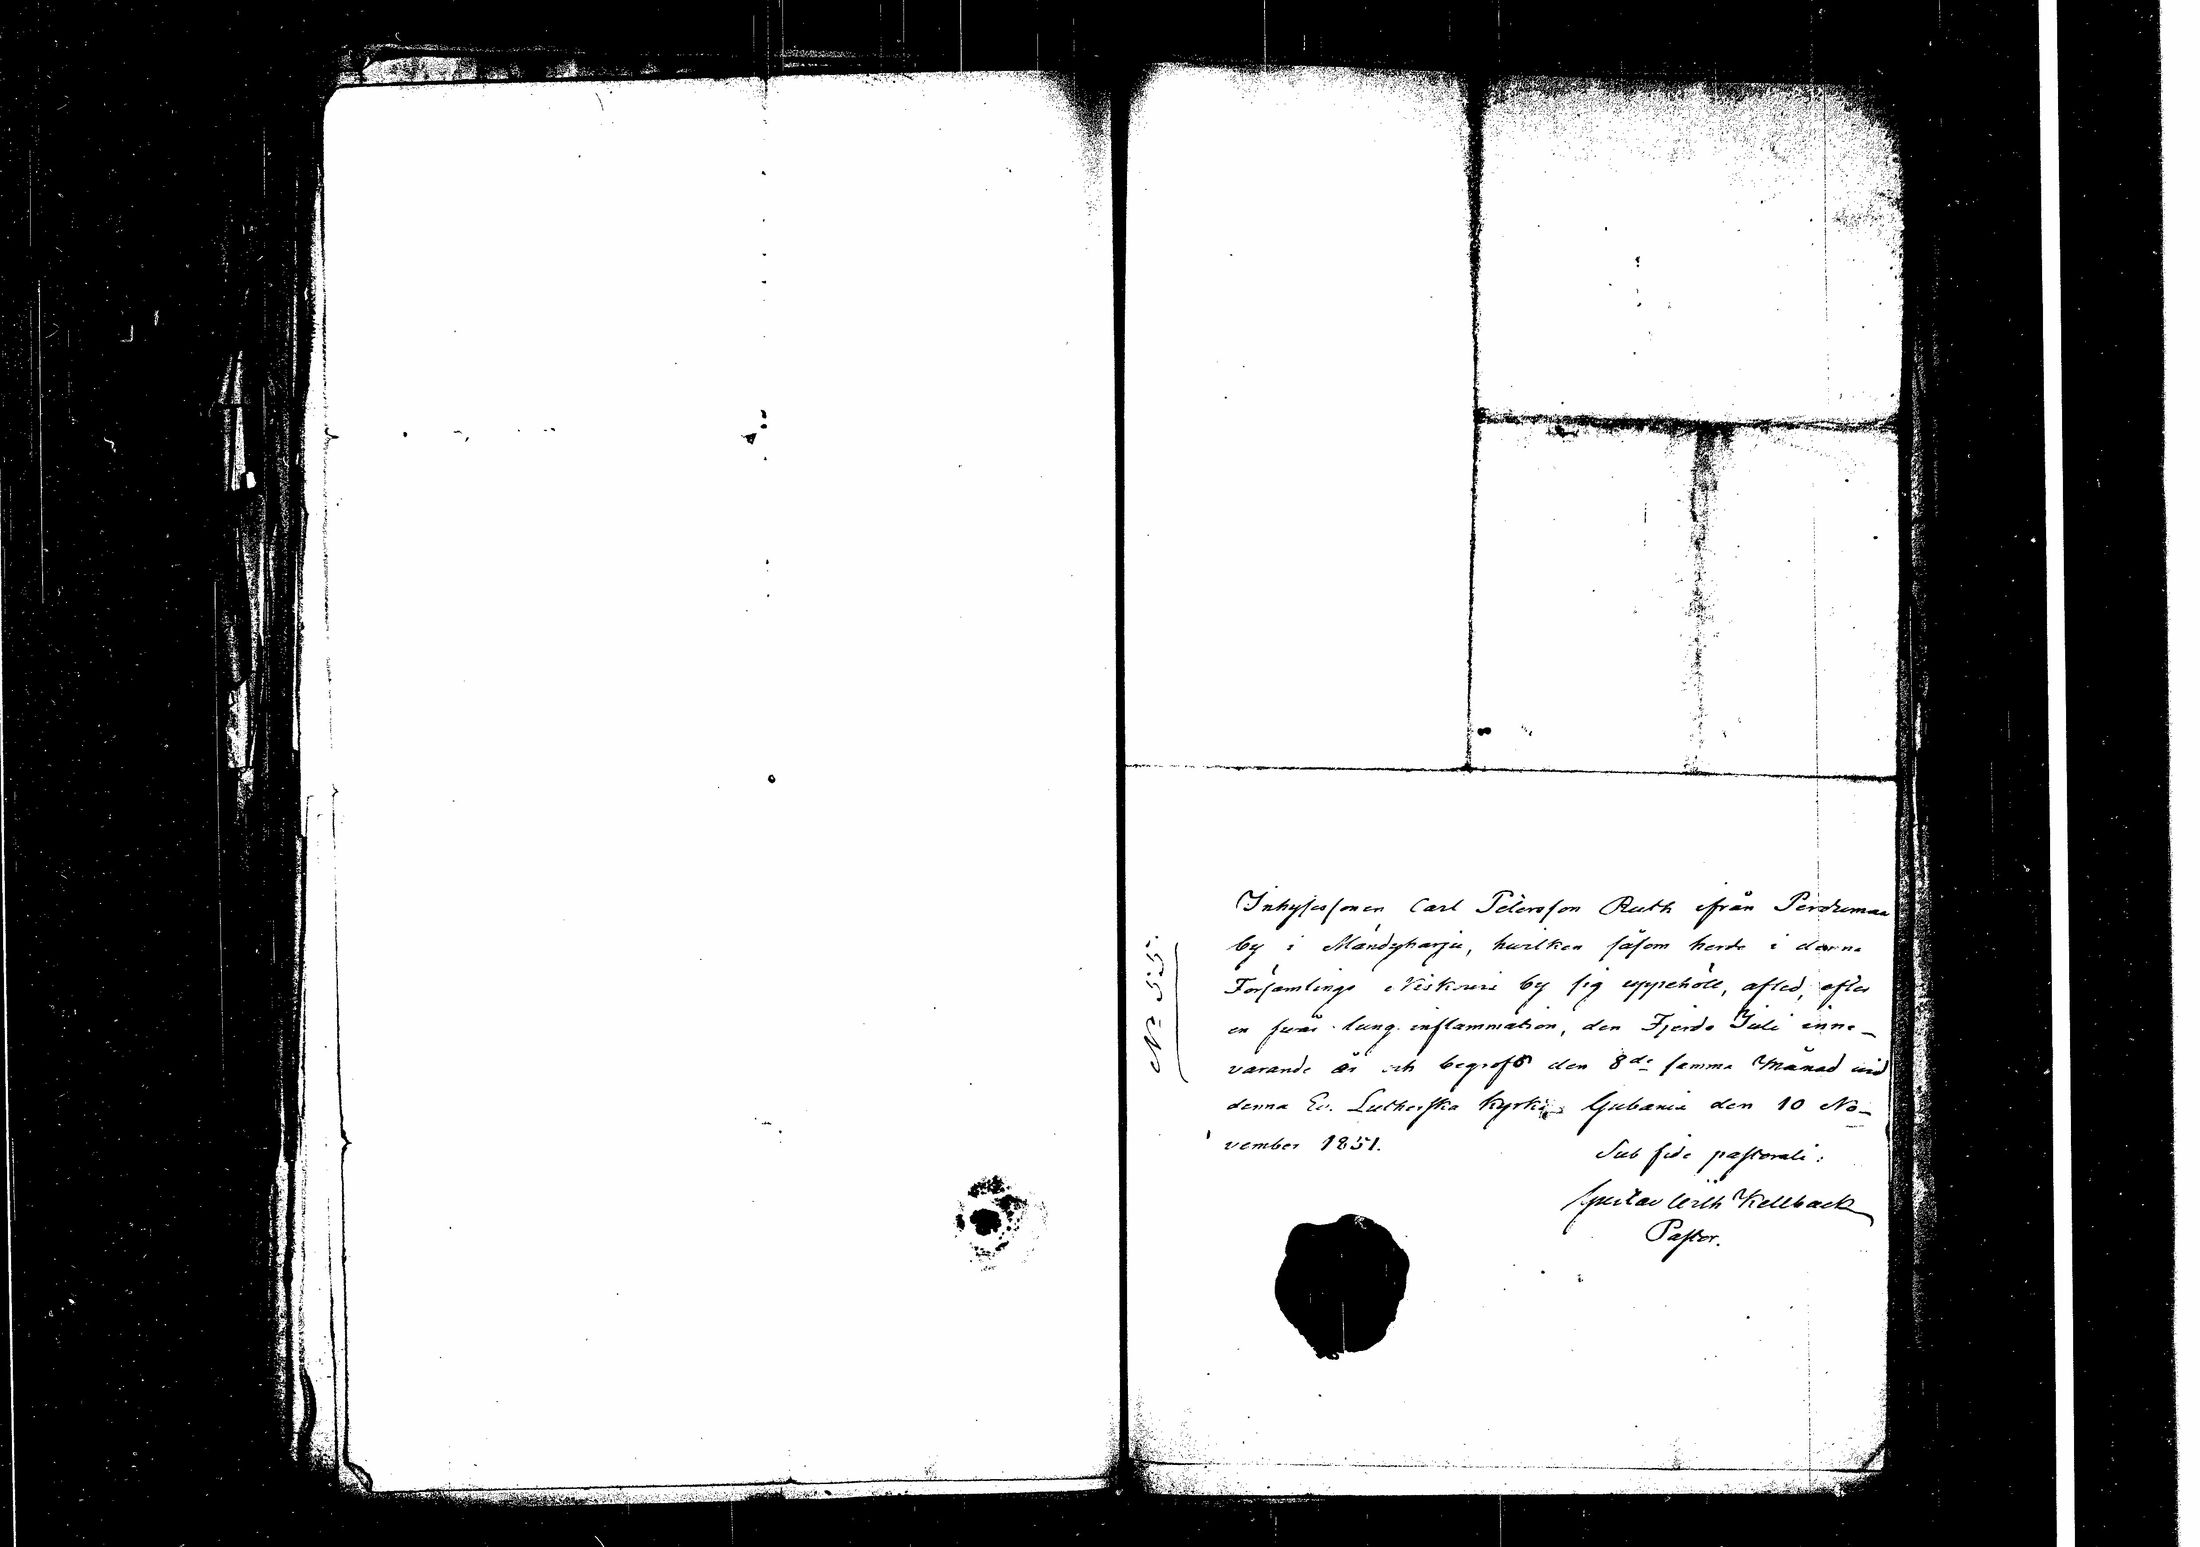 No 55.
Inhysessonen Carl Petersson Ruth ifrån Pertumaa
by i Mändyharju, hwilken såsom herde i denna
Församlings Niskuri by sig uppehöll, afled, efter
en svår lung inflammation, den Fjerde Juli inne-
varande år och begrofs den 8de samma Månad vid
denna Ev. Lutherska Kyrka Gubania den 10 No-
vember 1851.
Sub fide pastorali:
Gustav Wilh Kellback
Pastor.